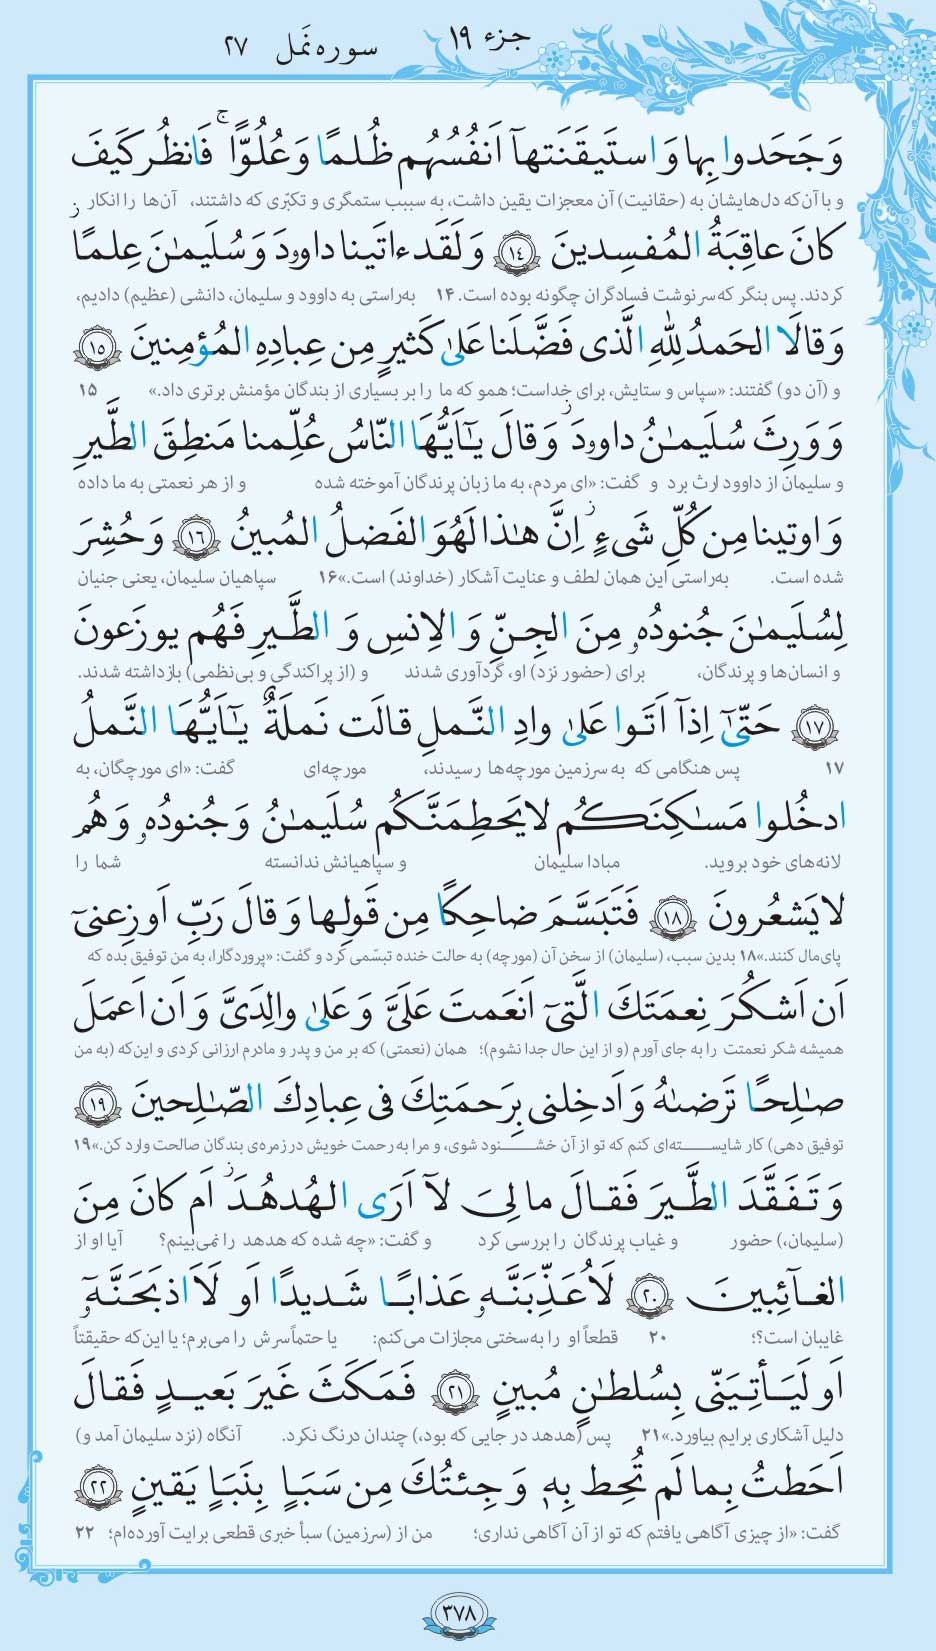 جزء ۱۹ سوره نَمل ۲۷
وَ جَحَدوا بِها وَ استَیقَنَتهآ اَنفُسُهُم ظُلمًا وَ عُلُوًّا ۚ فَانظُر کَیفَ
و با آن‌که دل‌هایشان به (حقانیت) آن معجزات یقین داشت، به سببب ستمگری و تکبّری که داشتند، آن‌ها را انکار
کانَ عاقِبَةُ المُفسِدینَ ﴿١٤﴾ وَ لَقَد ءاتَینا داوودَ وَ سُلَیمـٰنَ عِلمًا ز
کردند. پس بنگر که سرنوشت فسادگران چگونه بوده است. ۱۴ به‌راستی به داوود و سلیمان، دانشی (عظیم) دادیم،
وَ قالَا الحَمدُ لِلّٰهِ الَّذی فَضَّلَنا عَلیٰ کَثیرٍ مِن عِبادِهِ المُؤمِنینَ ﴿١٥﴾
و (آن دو) گفتند: «سپاس و ستایش، برای خداست؛ همو که ما را بر بسیاری از بندگان مؤمنش برتری داد.» ۱۵
وَ وَرِثَ سُلَیمـٰنُ داوودَ ز وَ قالَ یـٰٓاَیُّهَا النّاسُ عُلِّمنا مَنطِقَ الطَّیرِ
و سلیمان از داوود ارث برد و گفت: «ای مردم، به ما زبان پرندگان آموخته شده و از هر نعمتی به ما داده
وَ اوتینا مِن کُلِّ شَیءٍ ز اِنَّ هـٰذا لَهُوَ الفَضلُ المُبینُ ﴿١٦﴾ وَ حُشِرَ
شده است. به‌راستی این همان لطف و عنایت آشکار (خداوند) است.» ۱۶ سپاهیان سلیمان، یعنی جنیان
لِسُلَیمـٰنَ جُنودُهٗ مِنَ الجِنِّ وَ الاِنسِ وَ الطَّیرِ فَهُم یوزَعونَ
و انسان‌ها و پرندگان، برای (حضور نزد) او، گردآوری شدند و (از پراکندگی و بی‌نظمی) بازداشته شدند.
﴿١٧﴾ حَتّیٰٓ اِذآ اَتَوا عَلیٰ وادِ النَّملِ قالَت نَملَةٌ یـٰٓاَیُّهَا النَّملُ
۱۷ پس هنگامی که به سرزمین مورچه‌ها رسیدند، مورچه‌ای گفت: «ای مورچگان، به
ادخُلوا مَسـٰکِنَکُم لا یَحطِمَنَّکُم سُلَیمـٰنُ وَ جُنودُهٗ وَ هُم
لانه‌های خود بروید. مبادا سلیمان و سپاهیانش ندانسته شما را
لا یَشعُرونَ ﴿١٨﴾ فَتَبَسَّمَ ضاحِکًا مِن قَولِها وَ قالَ رَبِّ اَوزِعنیٓ
پای‌مال کنند.» ۱۸ بدین سبب، (سلیمان) از سخن آن (مورچه) به حالت خنده تبسّمی کرد و گفت: «پروردگارا، به من توفیق بده که
اَن اَشکُرَ نِعمَتَکَ الَّتیٓ اَنعَمتَ عَلَیَّ وَ عَلیٰ والِدَیَّ وَ اَن اَعمَلَ
همیشه شکر نعمتت را به جای آورم (و از این حال جدا نشوم)؛ همان (نعمتی) که بر من و پدر و مادرم ارزانی کردی و این‌که (به من
صـٰلِحًا تَرضـٰهُ وَ اَدخِلنی بِرَحمَتِکَ فی عِبادِکَ الصّـٰلِحینَ ﴿١٩﴾
توفیق دهی) کار شایسته‌ای کنم که تو از آن خشنود شوی، و مرا به رحمت خویش در زمره‌ی بندگان صالحت وارد کن.» ۱۹
وَ تَفَقَّدَ الطَّیرَ فَقالَ ما لِیَ لآ اَرَی الهُدهُدَ ز اَم کانَ مِنَ
(سلیمان،) حضور و غیاب پرندگان را بررسی کرد و گفت: «چه شده که هدهد را نمی‌بینم؟ آیا او از
الغـآئِبینَ ﴿٢٠﴾ لَاُعَذِّبَنَّهٗ عَذابًا شَدیدًا اَو لَاَاذبَحَنَّهٗٓ
غایبان است؟؛ ۲۰ قطعاً او را به‌سختی مجازات می‌کنم: یا حتماً سرش را می‌برم؛ یا این‌که حقیقتاً
اَو لَیَأتِیَنّی بِسُلطـٰنٍ مُبینٍ ﴿٢١﴾ فَمَکَثَ غَیرَ بَعیدٍ فَقالَ
دلیل آشکاری برایم بیاورد.» ۲۱ پس (هدهد در جایی که بود،) چندان درنگ نکرد. آنگاه (نزد سلیمان آمد و)
اَحَطتُ بِما لَم تُحِط بِهٖ وَ جِئتُکَ مِن سَبَاٍ بِنَبَاٍ یَقینٍ ﴿٢٢﴾
گفت: «از چیزی آگاهی یافتم که تو از آن آگاهی نداری؛ من از (سرزمین) سبأ خبری قطعی برایت آورده‌ام؛ ۲۲
۳۷۸